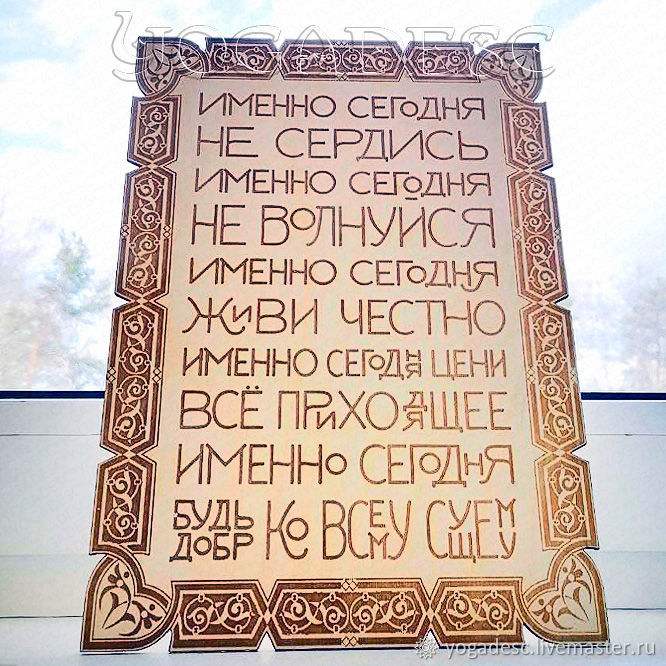 YOGADESC
ИМЕННО СЕГОДНЯ
НЕ СЕРДИСЬ
ИМЕННО СЕГОДНЯ
НЕ ВОЛНУЙСЯ
ИМЕННО СЕГОДНЯ
ЖИВИ ЧЕСТНО
ИМЕННО СЕГОДНЯ ЦЕНИ
ВСЁ ПРИХОДЯЩЕЕ
ИМЕННО СЕГОДНЯ
БУДЬ ДОБР КО ВСЕМУ СУЩЕМУ
yogadesc.livemaster.ru